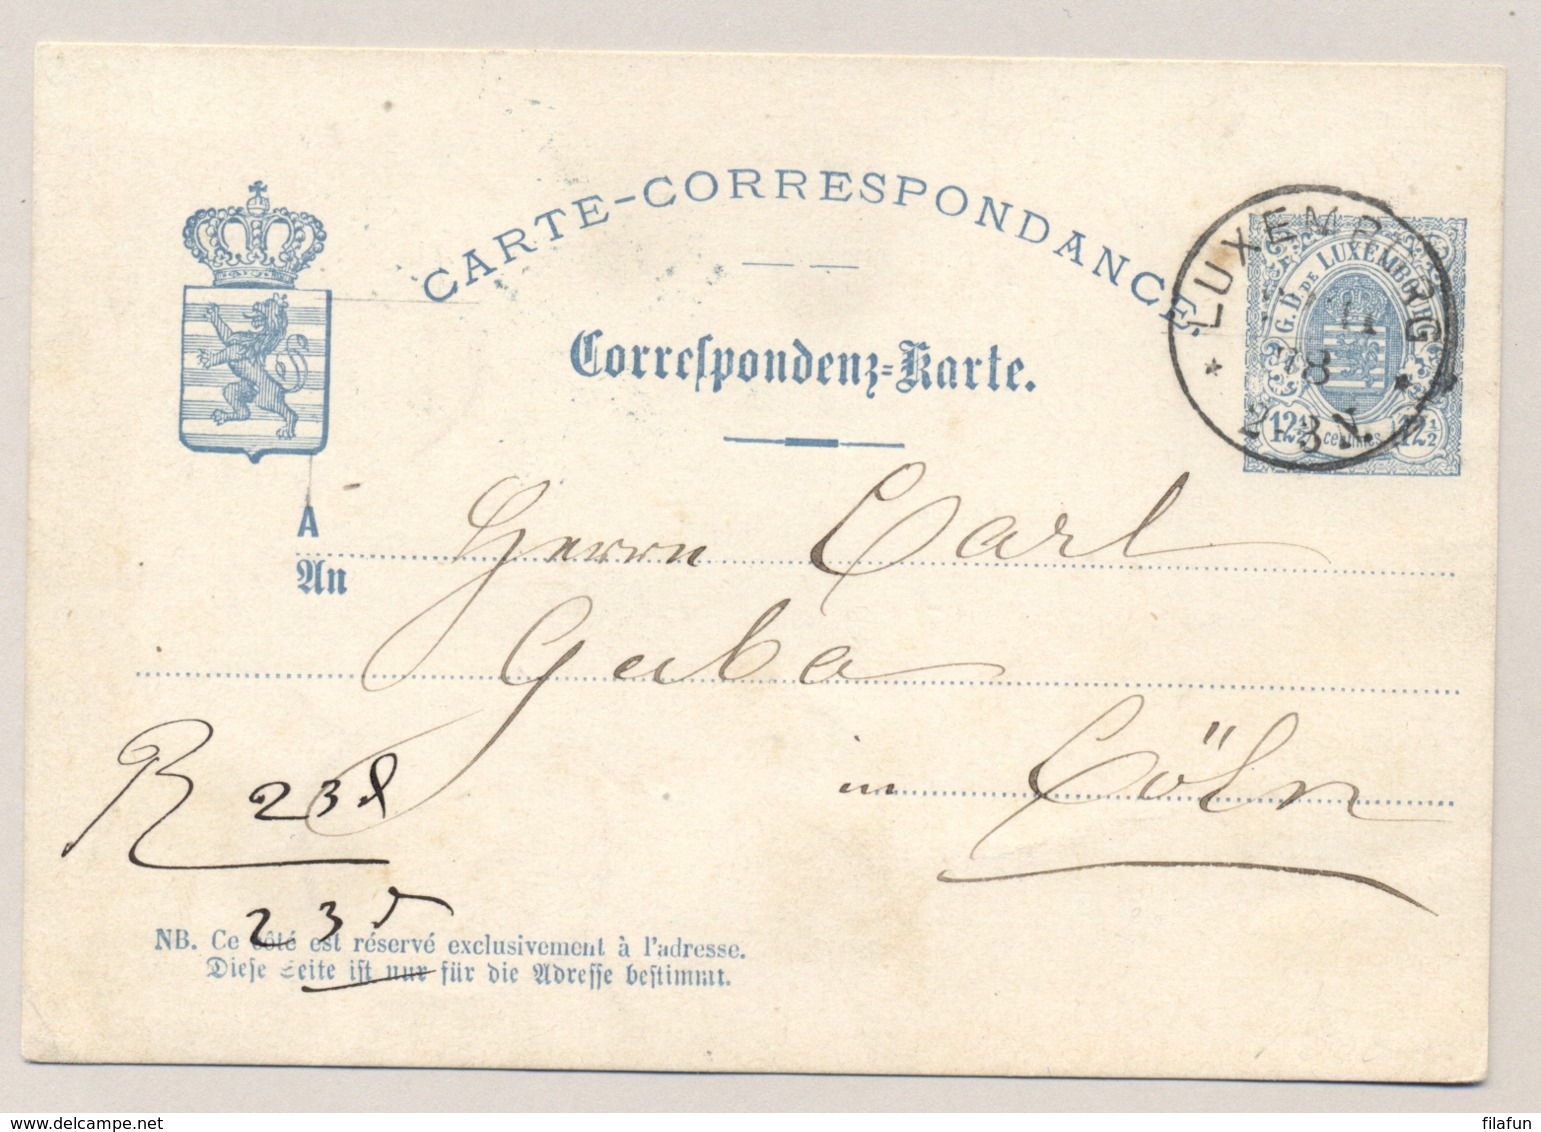 CARTE-CORRESPONDANCE.
Correſpondenz=Karte.
LUXEMBURG
78
2-3 N.
G. D. DE LUXEMBOURG
12½ centimes 12½
A
An
Herrn Carl
Guba
in Cöln
R 238
235
NB. Ce côté est réservé exclusivement à l'adresse.
Dieſe Seite iſt nur für die Adreſſe beſtimmt.
delcampe.net
filafun